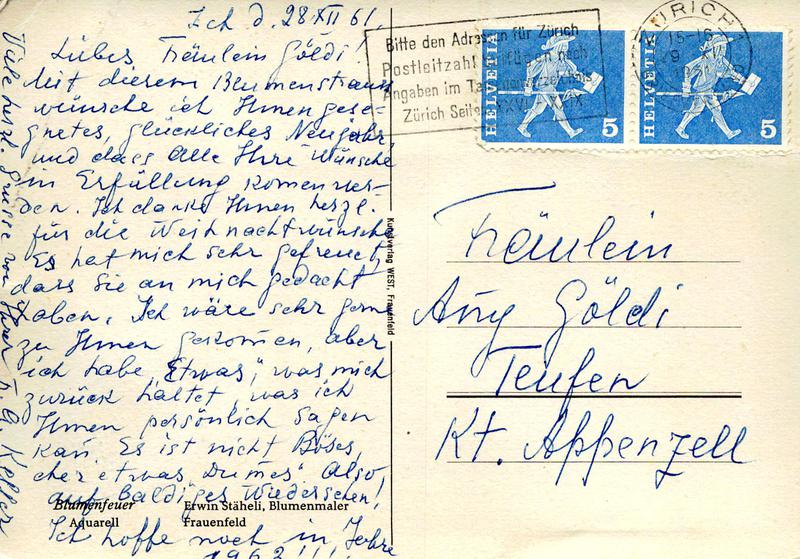 Zch d. 28 XII 61.
Liebes Fräulein Göldi!
Mit diesem Blumenstrauss
wünsche ich Ihnen gese-
gnetes, glückliches Neujahr
und dass Alle Ihre Wünsche
in Erfüllung komen wer-
den. Ich danke Ihnen herzl.
für die Weihnachtwünsche
Es hat mich sehr gefreut,
dass Sie an mich gedacht
haben. Ich wäre sehr gern
zu Ihnen gekomen, aber
ich habe „Etwas", was mich
zurück haltet, was ich
Ihnen persönlich sagen
kan. Es ist nicht Böses,
eher etwas Dumes" Also,
auf Baldiges Wiedersehen!
Ich hoffe noch in Jahre
1962!!!
Viele herzl. Grüsse von Ihrer Keller
Blumenfeuer
Aquarell
Erwin Stäheli, Blumenmaler
Frauenfeld
Kunstverlag WEST, Frauenfeld
Bitte den Adressen für Zürich
Postleitzahl beifügen nach
Angaben im
Zürich Seiten XXVI - XXIX
ZÜRICH
15-16
HELVETIA
5
HELVETIA
5
Fräulein
Any Göldi
Teufen
Kt. Appenzell